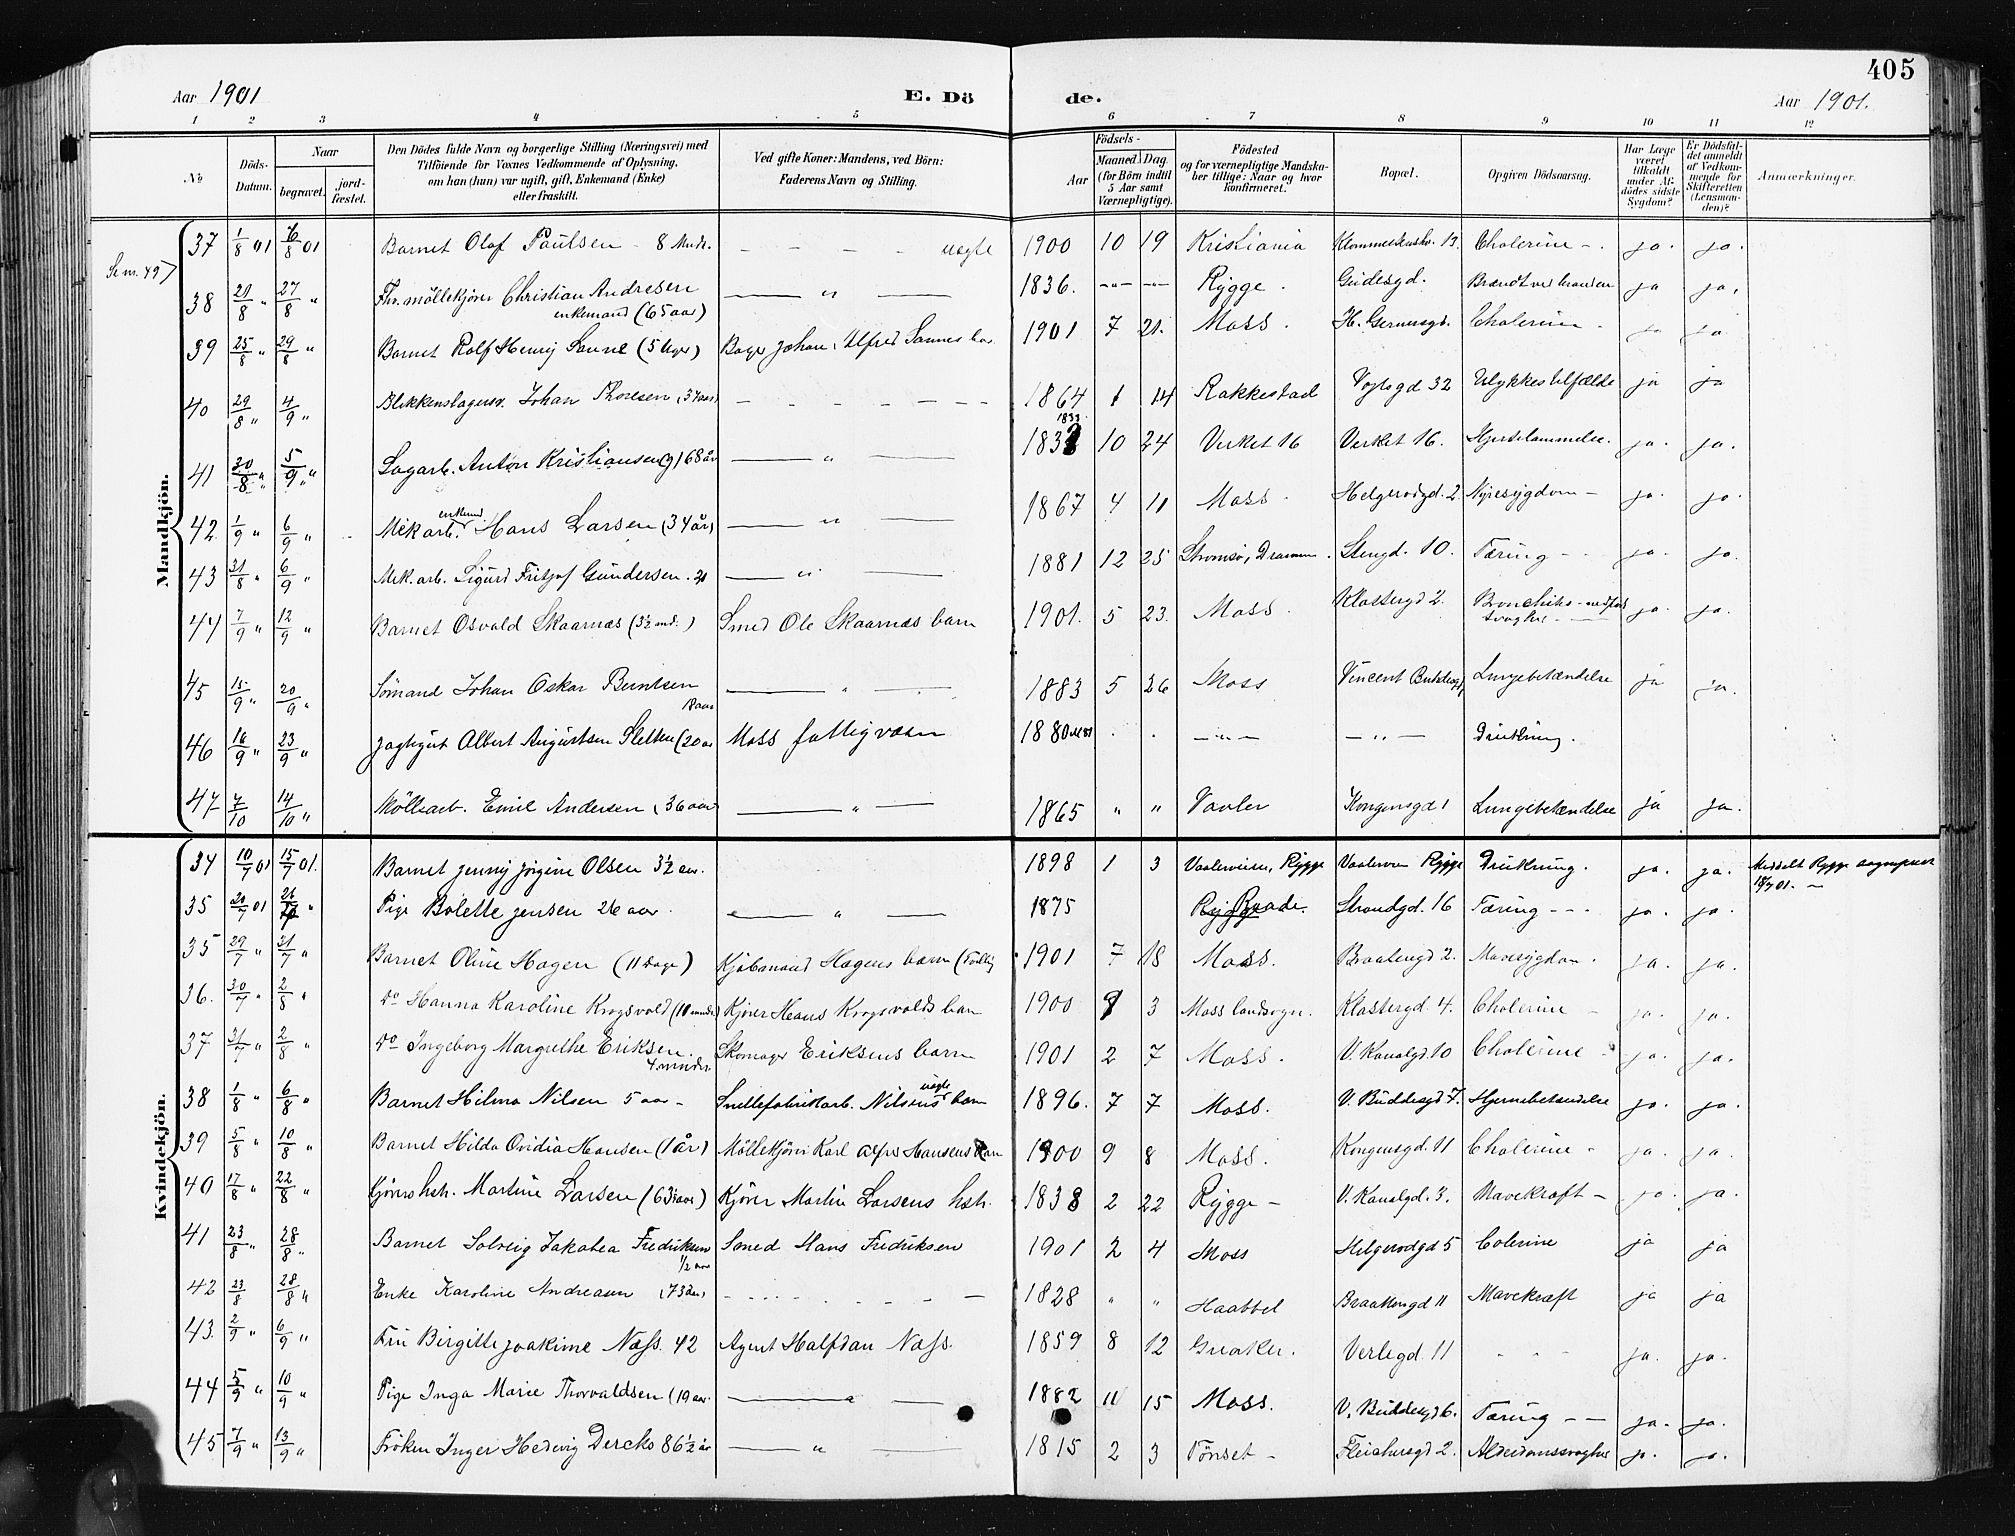 405
Aar 1901 E. Dö de. Aar 1901.
1 2 3 4 5 6 7 8 9 10 11 12
№
Döds-Datum.
Naar
begravet.
jord-fæstet.
Den Dödes fulde Navn og borgerlige Stilling (Næringsvei) med
Tilföiende for Voxnes Vedkommende af Oplysning,
om han (hun) var ugift, gift, Enkemand (Enke)
eller fraskilt.
Ved gifte Koner: Mandens, ved Börn:
Faderens Navn og Stilling.
Födsels-
Aar
Maaned Dag
(for Börn indtil
5 Aar samt
Værnepligtige).
Födested
og for værnepligtige Mandska-
ber tillige: Naar og hvor
konfirmeret.
Bopæl.
Opgiven Dödsaarsag.
Har Læge
været
tilkaldt
under Af-
dödes sidste
Sygdom?
Er Dödsfal-
det anmeldt
af Vedkom-
mende for
Skifteretten
(Lensman-
den)?
Anmærkninger.
Mandkjön.
37 1/8 01 6/8 01 Barnet Olof Paulsen - 8 Mndr. - - - - uægte 1900 10 19 Kristiania Cholerine - ja. ja.
38 21/8 " 27/8 " Christian Andresen enkemand (65 aar) " 1836. -"- -"- Rygge. Gudesgd. ja ja,
39 25/8 " 29/8 " Barnet Rolf Henrij Sanne (5 Uger) Bager Johan Alfred Sannes 1901 7 21. Moss. Cholerine - ja ja
40 29/8 " 4/9 " Blikkenslagersv. Johan Thoresen (37 aar) - - - - 1864 1 14 Rakkestad Vogtsgd 32 Ulykkestilfælde ja ja
41 30/8 " 5/9 " Sagarb. Anton Kristiansen (g) 68 år " 1833 10 24 Verket 16 Verket 16. Hjertelammelse. ja. ja.
42 1/9 " 6/9 " Mek arb. enkemd. Hans Larsen (34 år) " 1867 4 11 Moss. Helgerodgd. 2. Nyresygdom - ja. ja.
43 31/8 " 6/9 " Mek. arb. Sigurd Fritjof Gundersen. 20 " 1881 12 25 Strømsø, Drammen. Stengd. 10. Tæring - - ja. ja.
44 7/9 " 12/9 " Barnet Osvald Skaarnæs (3½ md.) Smed Ole Skaarnæs barn 1901. 5 23. Moss. Klostergd 2. Bronchitis - medfødt svaghed - ja. ja.
45 15/9 " 20/9 " Sömand Johan Oskar Berntsen 18 aar " 1883 5 26 Moss Lungebetændelse ja ja.
46 16/9 " 23/9 " Albert Augustsen Sletten (20 aar Moss fattigvæsen 1880 . . -"- -"- Drukning.
47 7/10 14/10 " Möllearb. Emil Andersen (36 aar) " 1865 " " Vaaler Kongensgd 1 Lungebetændelse ja ja.
Kvindekjön.
34 10/7 01 15/7 01. Barnet Jenny Jörgine Olsen 3½ aar. 1898 1 3 Vaalerveien, Rygge Vaalerveien Rygge Drukning. ja. ja. Meddelt Rygge sognepræst
35 20/7 01 26/7 " Pige Bolette Jensen 26 aar. " 1875 Rygge Raade. Strandgd. 16 Tæring - - - ja. ja.
35 29/7 " 31/7 " Barnet Oline Hagen (11 Dage) Kjöbmand Hagens barn 1901 7 18 Moss. Braatengd 2. Mavesygdom. ja. ja.
36. 30/7 " 2/8 " Do Hanna Karoline Krogsvold (10 mndr) Kjörer Hans Krogsvolds barn 1900 9 3 Moss landsogn. Klostergd 4. Cholerine - ja. ja.
37 31/7 " 2/8 " Do Ingeborg Margrethe Eriksen. 4 mndr. Skomager Eriksens barn 1901 2 7 Moss. V. Kanalgd. 10 Cholerine - ja. ja.
38 1/8 " 6/8 " Barnet Hilma Nilsen 5 aar - Snellefabrikarb. Nilsens uægte barn 1896. 7 7 Moss. V. Buddesgd 7. Hjernebetændelse ja. ja.
39 5/8 " 10/8 " Barnet Hilda Ovidia Hansen (1 år) Möllekjörer Karl Alfr Hansens Barn 1900 9 8 Moss. Kongensgd. 11 Cholerine - ja. ja.
40 17/8 " 22/8 " Kjörershstr. Martine Larsen (63 aar) Kjörer Martin Larsens hstr. 1838 2 22 Rygge - V. Kanalgd. 3. Mavekræft - ja. ja.
41 23/8 " 28/8 " Barnet Solveig Jakobea Fredriksen 1/2 aar Smed Hans Fredriksen 1901 2 4 Moss Helgerodgd 5 Colerine ja ja
42 23/8 28/8 " Enke Karoline Andreasen (73 aar) - - - - 1828 " " Haabbel Braatengd 11 Mavekræft ja ja
43. 2/9 " 6/9 " Fru Birgitte Joakime Næss. 42 Agent Halfdan Næss. 1859 8 12 Greaker. Verlegd. 11 - - - ja. ja.
44 5/9 " 10/9 " Pige Inga Marie Thorvaldsen (19 aar. " 1882 11 15 Moss. V. Buddesgd 6. Tæring - - ja. ja.
45 7/9 " 13/9 " Fröken Inger Hedevig Dercks 86½ år " 1815 2 3 Tönset - Fleichersgd 2. Alderdomssvaghed ja. ja.